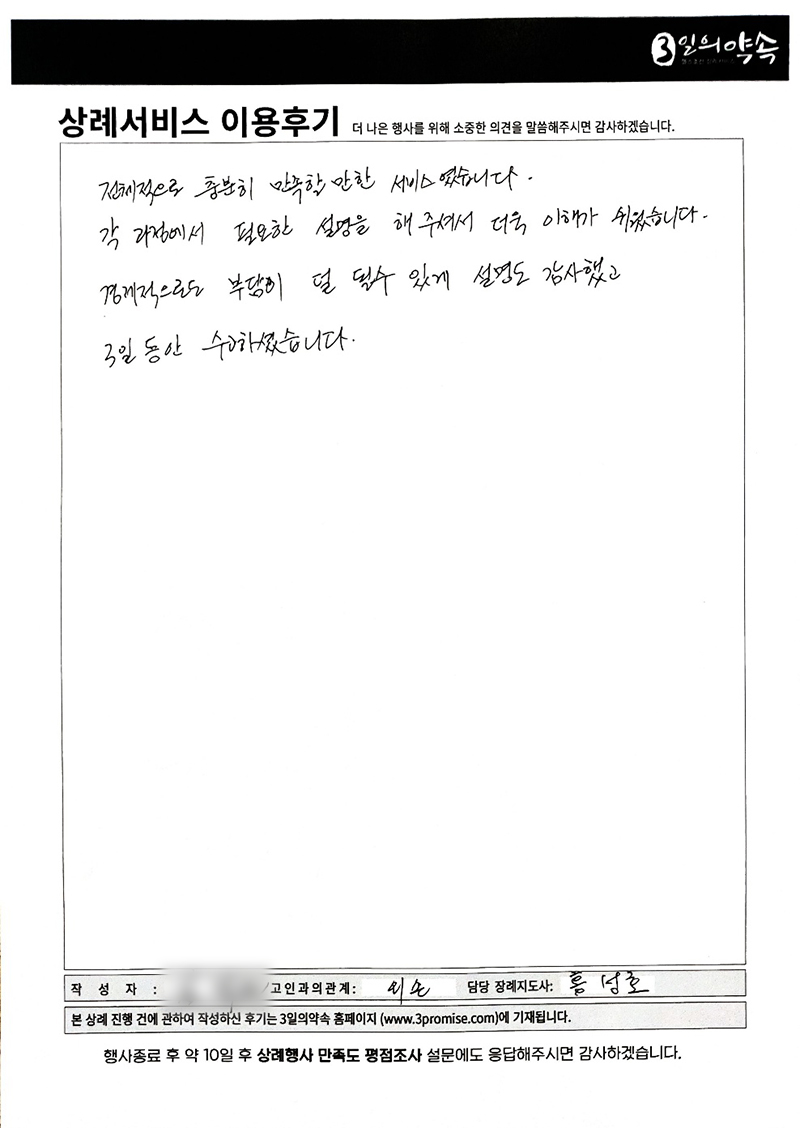 3일의약속
상례서비스 이용후기 더 나은 행사를 위해 소중한 의견을 말씀해주시면 감사하겠습니다.
전체적으로 충분히 만족할 만한 서비스였습니다.
각 과정에서 필요한 설명을 해 주셔서 더욱 이해가 쉬웠습니다.
경제적으로도 부담이 덜 될수 있게 설명도 감사했고
3일 동안 수고하셨습니다.
작 성 자 : /고인과의관계: 외손 담당 장례지도사: 홍성호
본 상례 진행 건에 관하여 작성하신 후기는 3일의약속 홈페이지 (www.3promise.com)에 기재됩니다.
행사종료 후 약 10일 후 상례행사 만족도 평점조사 설문에도 응답해주시면 감사하겠습니다.